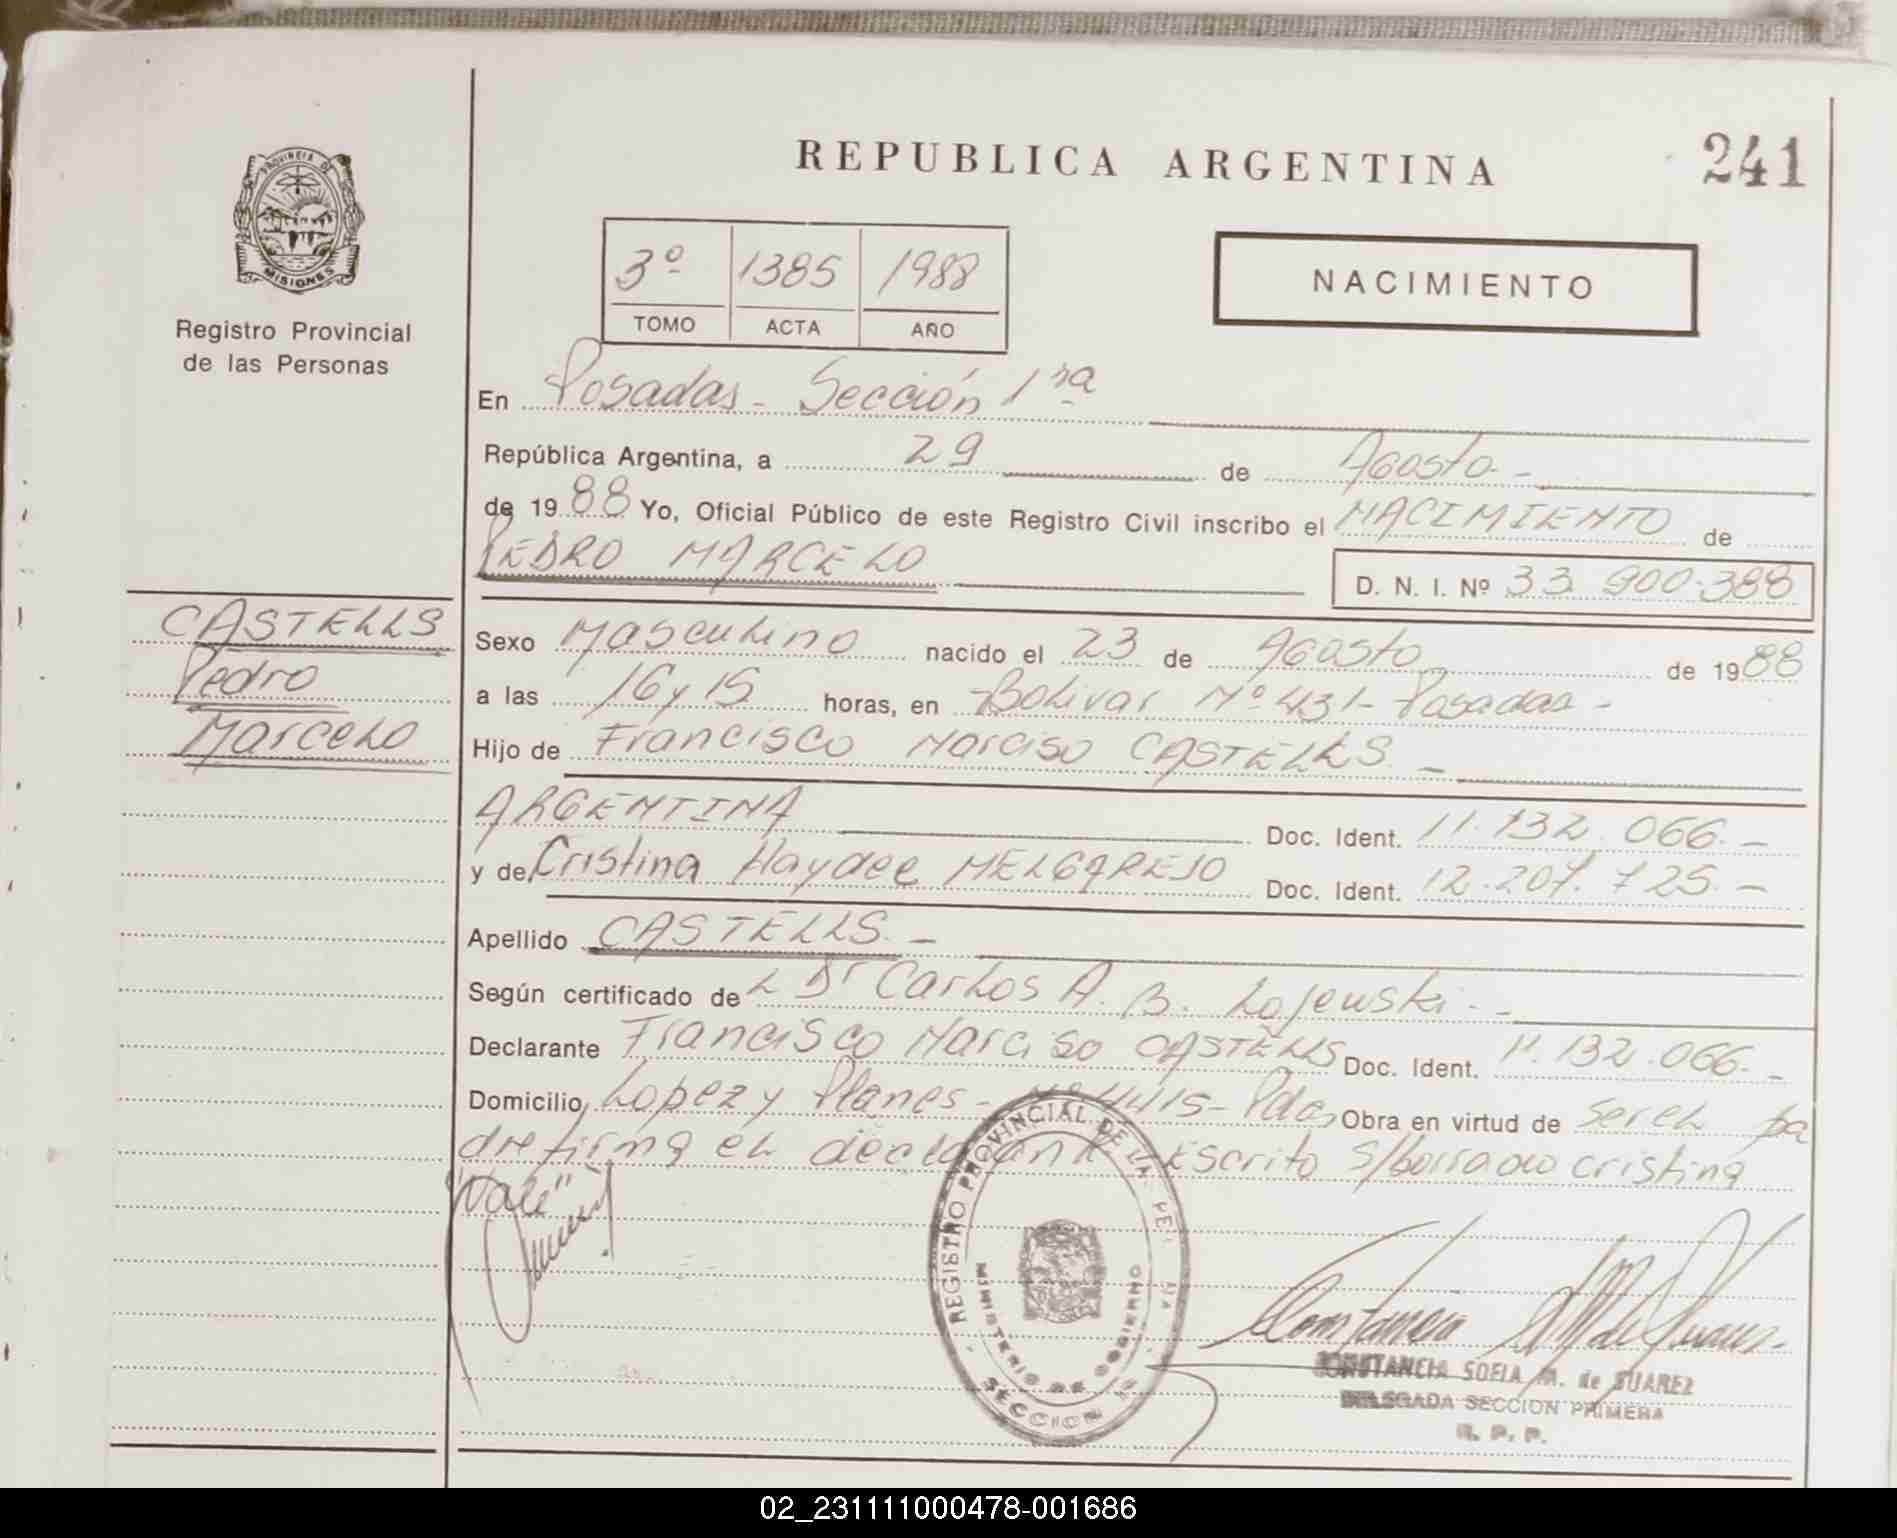 PROVINCIA DE
MISIONES
Registro Provincial
de las Personas
REPUBLICA ARGENTINA
241
3º 1385 1988
TOMO ACTA AÑO
NACIMIENTO
En Posadas - Sección 1ra
República Argentina, a 29 de Agosto -
de 1988 Yo, Oficial Público de este Registro Civil inscribo el NACIMIENTO de
PEDRO MARCELO
D. N. I. Nº 33.900.388
CASTELLS
Pedro
Marcelo
Sexo Masculino nacido el 23 de Agosto de 1988
a las 16 y 15 horas, en Bolivar Nº 431 - Posadas -
Hijo de Francisco Narciso CASTELLS. -
ARGENTINA Doc. Ident. 11.132.066. -
y de Cristina Haydee MELGAREJO Doc. Ident. 12.207.725. -
Apellido CASTELLS. -
Según certificado de L Dr Carlos A. B. Lojewski. -
Declarante Francisco Narciso CASTELLS Doc. Ident. 11.132.066. -
Domicilio, Lopez y Planes - Nº 4415 - Pdas, Obra en virtud de ser el pa
dre firma el declarante Escrito s/borrado cristina
"Vale"
REGISTRO PROVINCIAL DE LAS PER
MINISTERIO DE GOBIERNO
SECCION
Constancia de Suarez
CONSTANCIA SOFIA M. de SUAREZ
DELEGADA SECCION PRIMERA
R. P. P.
02_231111000478-001686